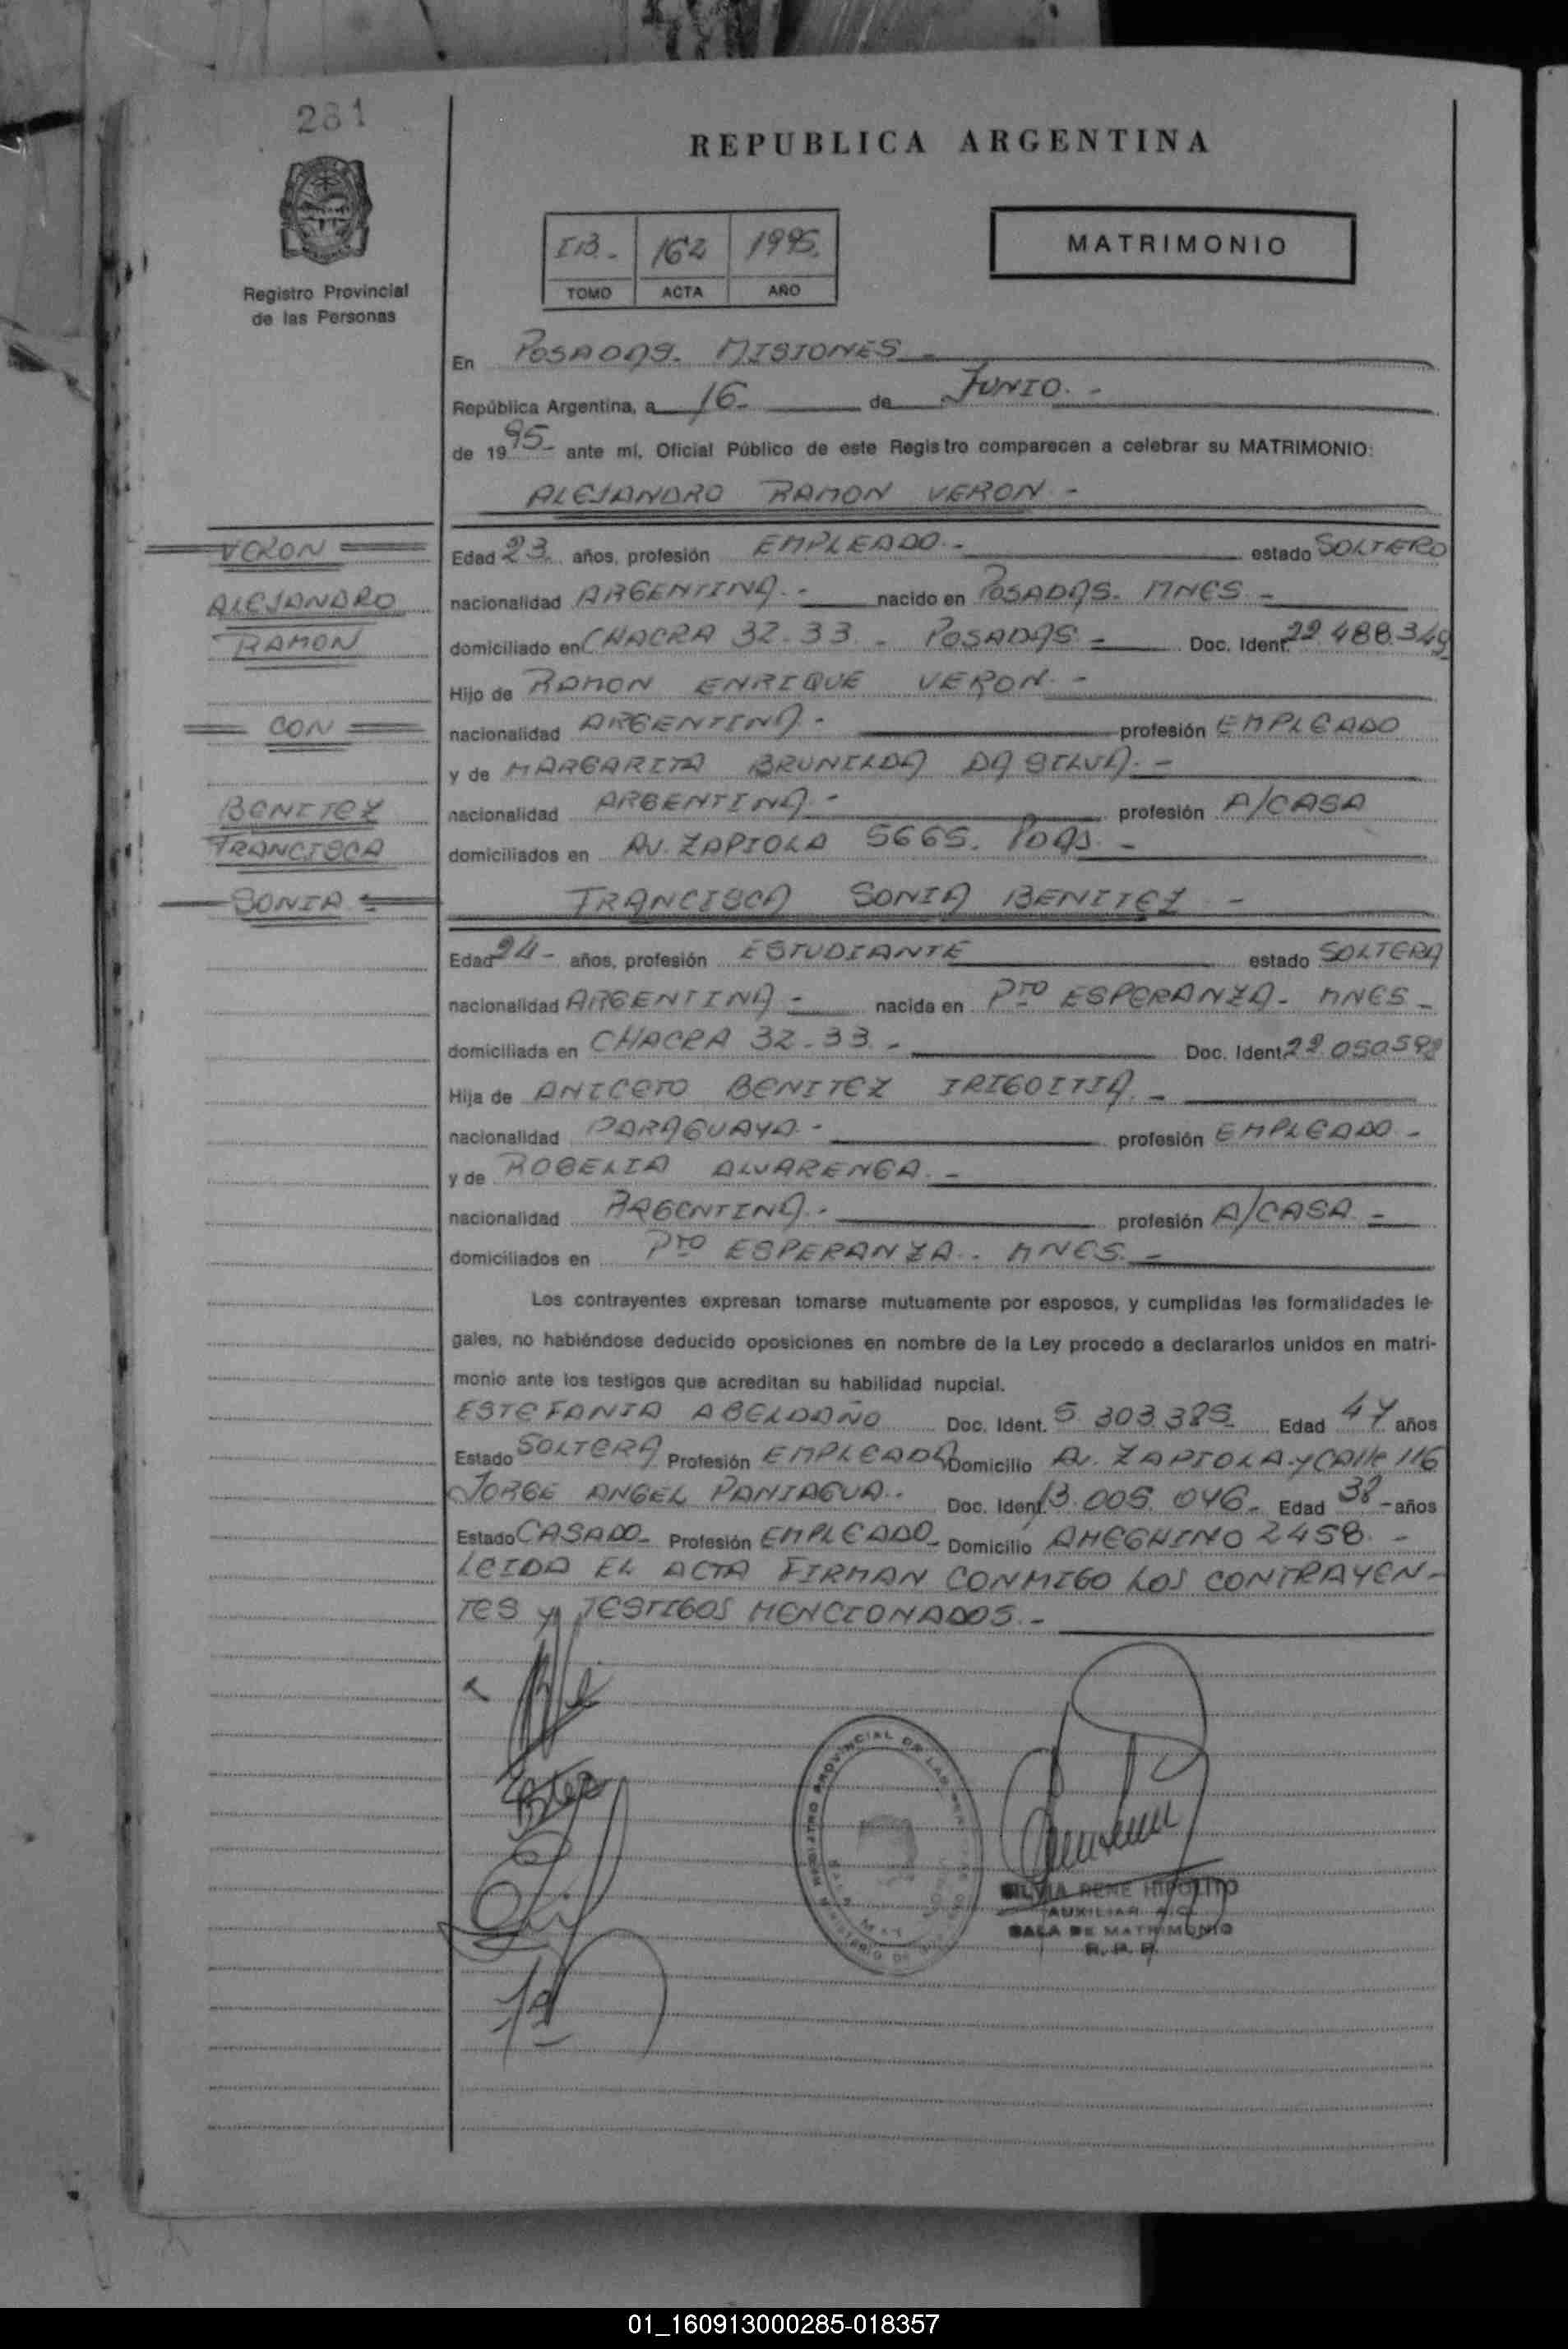 281
REPUBLICA ARGENTINA
Registro Provincial
de las Personas
IB.- 162 1995.
TOMO ACTA AÑO
MATRIMONIO
En POSADAS. MISIONES -
República Argentina, a 16.- de JUNIO. -
de 1995- ante mí, Oficial Público de este Registro comparecen a celebrar su MATRIMONIO:
ALEJANDRO RAMON VERON -
VERON
ALEJANDRO
RAMON
CON
BENITEZ
FRANCISCA
SONIA
Edad 23 años, profesión EMPLEADO.- estado SOLTERO
nacionalidad ARGENTINA.- nacido en POSADAS. MNES -
domiciliado en CHACRA 32-33 - POSADAS - Doc. Ident. 22 488.349
Hijo de RAMON ENRIQUE VERON. -
nacionalidad ARGENTINA.- profesión EMPLEADO
y de MARGARITA BRUNILDA DA SILVA. -
nacionalidad ARGENTINA.- profesión A/CASA
domiciliados en AV. ZAPIOLA 5665. PDAS. -
FRANCISCA SONIA BENITEZ -
Edad 24- años, profesión ESTUDIANTE estado SOLTERA
nacionalidad ARGENTINA - nacida en Pto ESPERANZA- MNES-
domiciliada en CHACRA 32-33 - Doc. Ident. 22.050598
Hija de ANICETO BENITEZ IRIGOITIA. -
nacionalidad PARAGUAYA - profesión EMPLEADO -
y de ROGELIA ALVARENGA. -
nacionalidad ARGENTINA.- profesión A/CASA -
domiciliados en Pto ESPERANZA. MNES. -
Los contrayentes expresan tomarse mutuamente por esposos, y cumplidas las formalidades le-
gales, no habiéndose deducido oposiciones en nombre de la Ley procedo a declararlos unidos en matri-
monio ante los testigos que acreditan su habilidad nupcial.
ESTEFANIA ABELDAÑO Doc. Ident. 5.303.385 Edad 47 años
Estado SOLTERA Profesión EMPLEADA Domicilio AV. ZAPIOLA y CAlle 116
JORGE ANGEL PANIAGUA.- Doc. Ident. 13.005.046- Edad 38- años
Estado CASADO- Profesión EMPLEADO- Domicilio AMEGHINO 2458 -
LEIDA EL ACTA FIRMAN CONMIGO LOS CONTRAYEN-
TES y TESTIGOS MENCIONADOS.-
REGISTRO PROVINCIAL DE LAS
SILVIA RENE HIPOLITO
AUXILIAR
SALA DE MATRIMONIO
R. P. P.
01_160913000285-018357